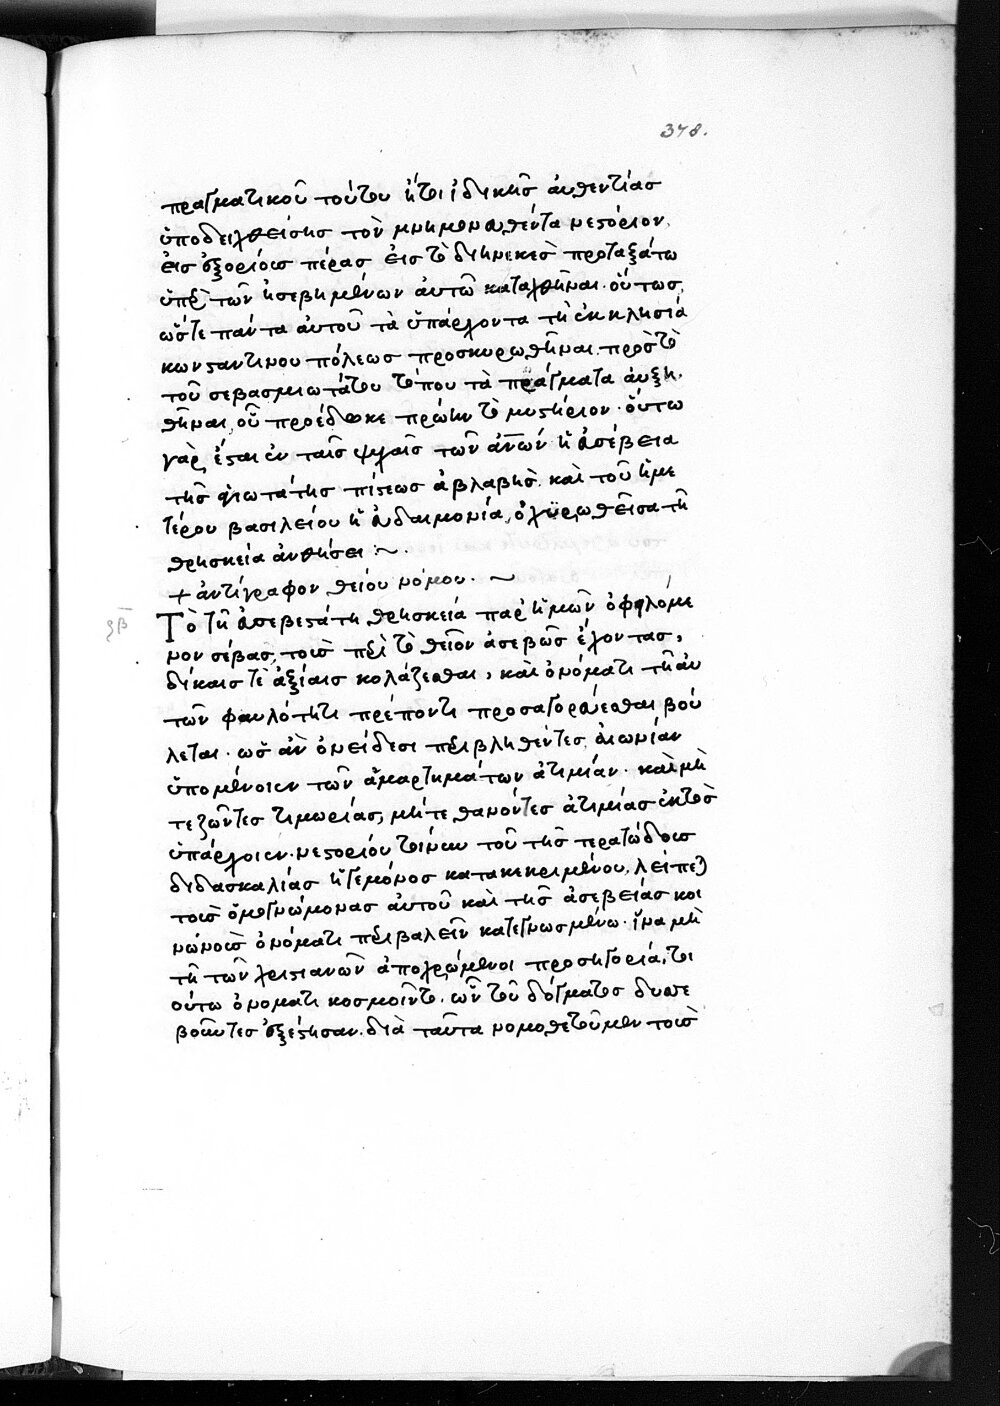 378.
πραγματικοῦ τούτου ἤτοι ἰδικῆς ἀυθεντίας
ὑποδειχθείσης τὸν μνημονευθέντα νεστόριον.
ἐις ἐξορίαν πέρας ἐις τὸ διηνεκὲς προταξάτω
ὑπὲρ τῶν ἠσεβημένων ἀυτῶ καταχθῆναι. ὅυτως,
ὥστε πάντα ἀυτοῦ τὰ ὑπάρχοντα τῆ ἐκκλησία
κωνσταντινουπόλεως προσκυρωθῆναι. πρὸς τὸ
τοῦ σεβασμιωτάτου τόπου τὰ πράγματα ἀυξη.
θῆναι, οὗ προέδωκε πρώην τὸ μυστήριον. ὅυτω
γὰρ ἔσται ἐν ταῖς ψυχαῖς τῶν ἀν̅ων ἡ ἀσέβεια
τῆς ἁγιωτάτης πίστεως ἀβλαβὴς. καὶ τοῦ ἡμε
τέρου βασιλείου ἡ ἐυδαιμονία, ὀχυρωθεῖσα τῆ
θρησκεία ἀνθήσει :~.
+ ἀντίγραφον θείου νόμου. ~
ξβ̅
Τὸ τῆ ἐυσεβεστάτη θρησκεία παρ' ἡμῶν ὀφειλόμε
νον σέβας, τοὺς περὶ τὸ θεῖον ἀσεβῶς ἔχοντας,
δίκαις τὲ ἀξίαις κολάζεσθαι, καὶ ὀνόματι τῆ ἀυ
τῶν φαυλότητι πρέποντι προσαγορέυεσθαι βού
λεται. ὡς ἂν ὀνείδεσι περιβληθέντες, ἀιωνίαν
ὑπομένοιεν τῶν ἁμαρτημάτων ἀτιμίαν. καὶ μὴ
τε ζῶντες τιμωρίας, μήτε θανόντες ἀτιμίας ἐκτὸς
ὑπάρχοιεν. νεστορίου τοίνυν τοῦ τῆς τερατώδους
διδασκαλίας ἡγεμόνος κατακεκριμένου, λείπεται
τοὺς ὁμογνώμονας ἀυτοῦ καὶ τῆς ἀσεβείας κοι
νωνοὺς ὀνόματι περιβαλεῖν κατεγνωσμένω. ἵνα μὴ
τῆ τῶν χριστιανῶν ἀποχρώμενοι προσηγορία, τοι
ούτω ὀνόματι κοσμοῖντο. ὧν τοῦ δόγματος δυσσε
βοῦντες ἐξέστησαν. διὰ ταῦτα νομοθετοῦμεν τοὺς